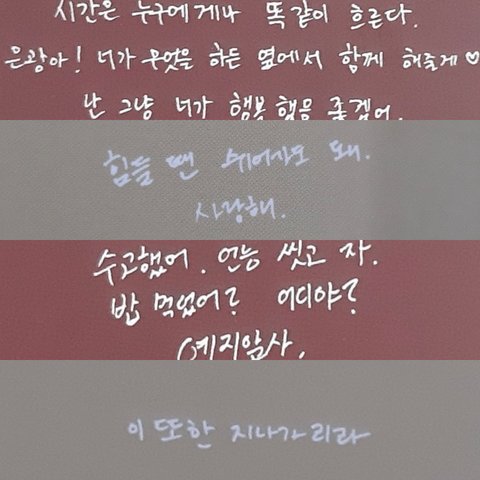 시간은 누구에게나 똑같이 흐른다.
은광아! 너가 무엇을 하든 옆에서 함께 해줄게♡
난 그냥 너가 행복했음 좋겠어.
힘들 땐 쉬어가도 돼.
사랑해.
수고했어. 언능 씻고 자.
밥 먹었어? 어디야?
예지앞사.
이 또한 지나가리라